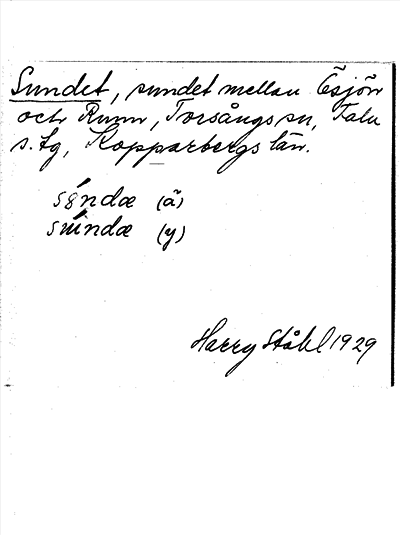 Sundet, sundet mellan Ösjön
och Runn, Torsångs sn, Falu
s. tg, Kopparbergs län.
sǿndæ (ä)
(y)
Harry Ståhl 1929